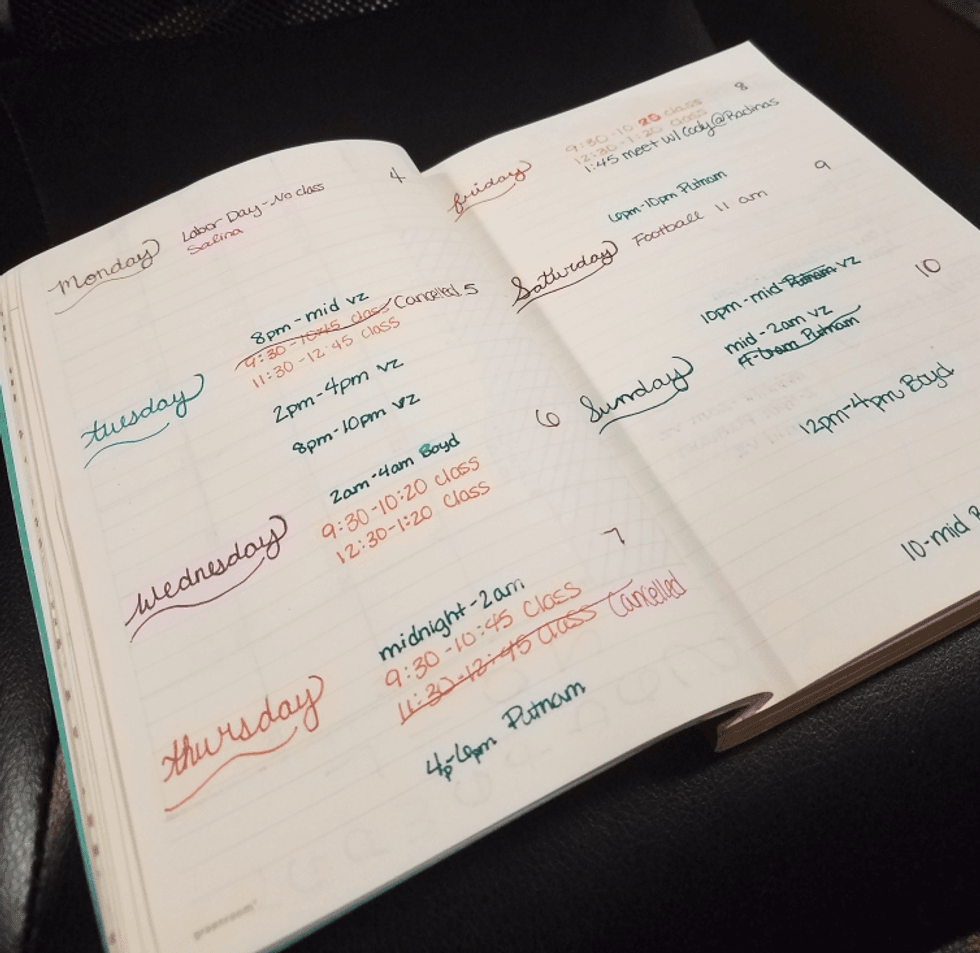 4
Labor Day - No class
Salina
Monday
8pm-mid vz
5
9:30-10:45 class Cancelled
11:30-12:45 class
tuesday
2pm-4pm vz
8pm-10pm vz
6
2am-4am Boyd
9:30-10:20 class
12:30-1:20 class
wednesday
7
midnight-2am
9:30-10:45 class
11:30-12:45 class Cancelled
thursday
4p-6pm Putnam
greenroom
8
9:30-10 20 class
12:30-1:20 class
1:45 meet w/ Cody@Radinas
friday
6pm-10pm Putnam
9
Football 11 am
Saturday
10pm-mid Putnam vz
10
mid-2am vz
Putnam
Sunday
12pm-4pm Boyd
10-mid